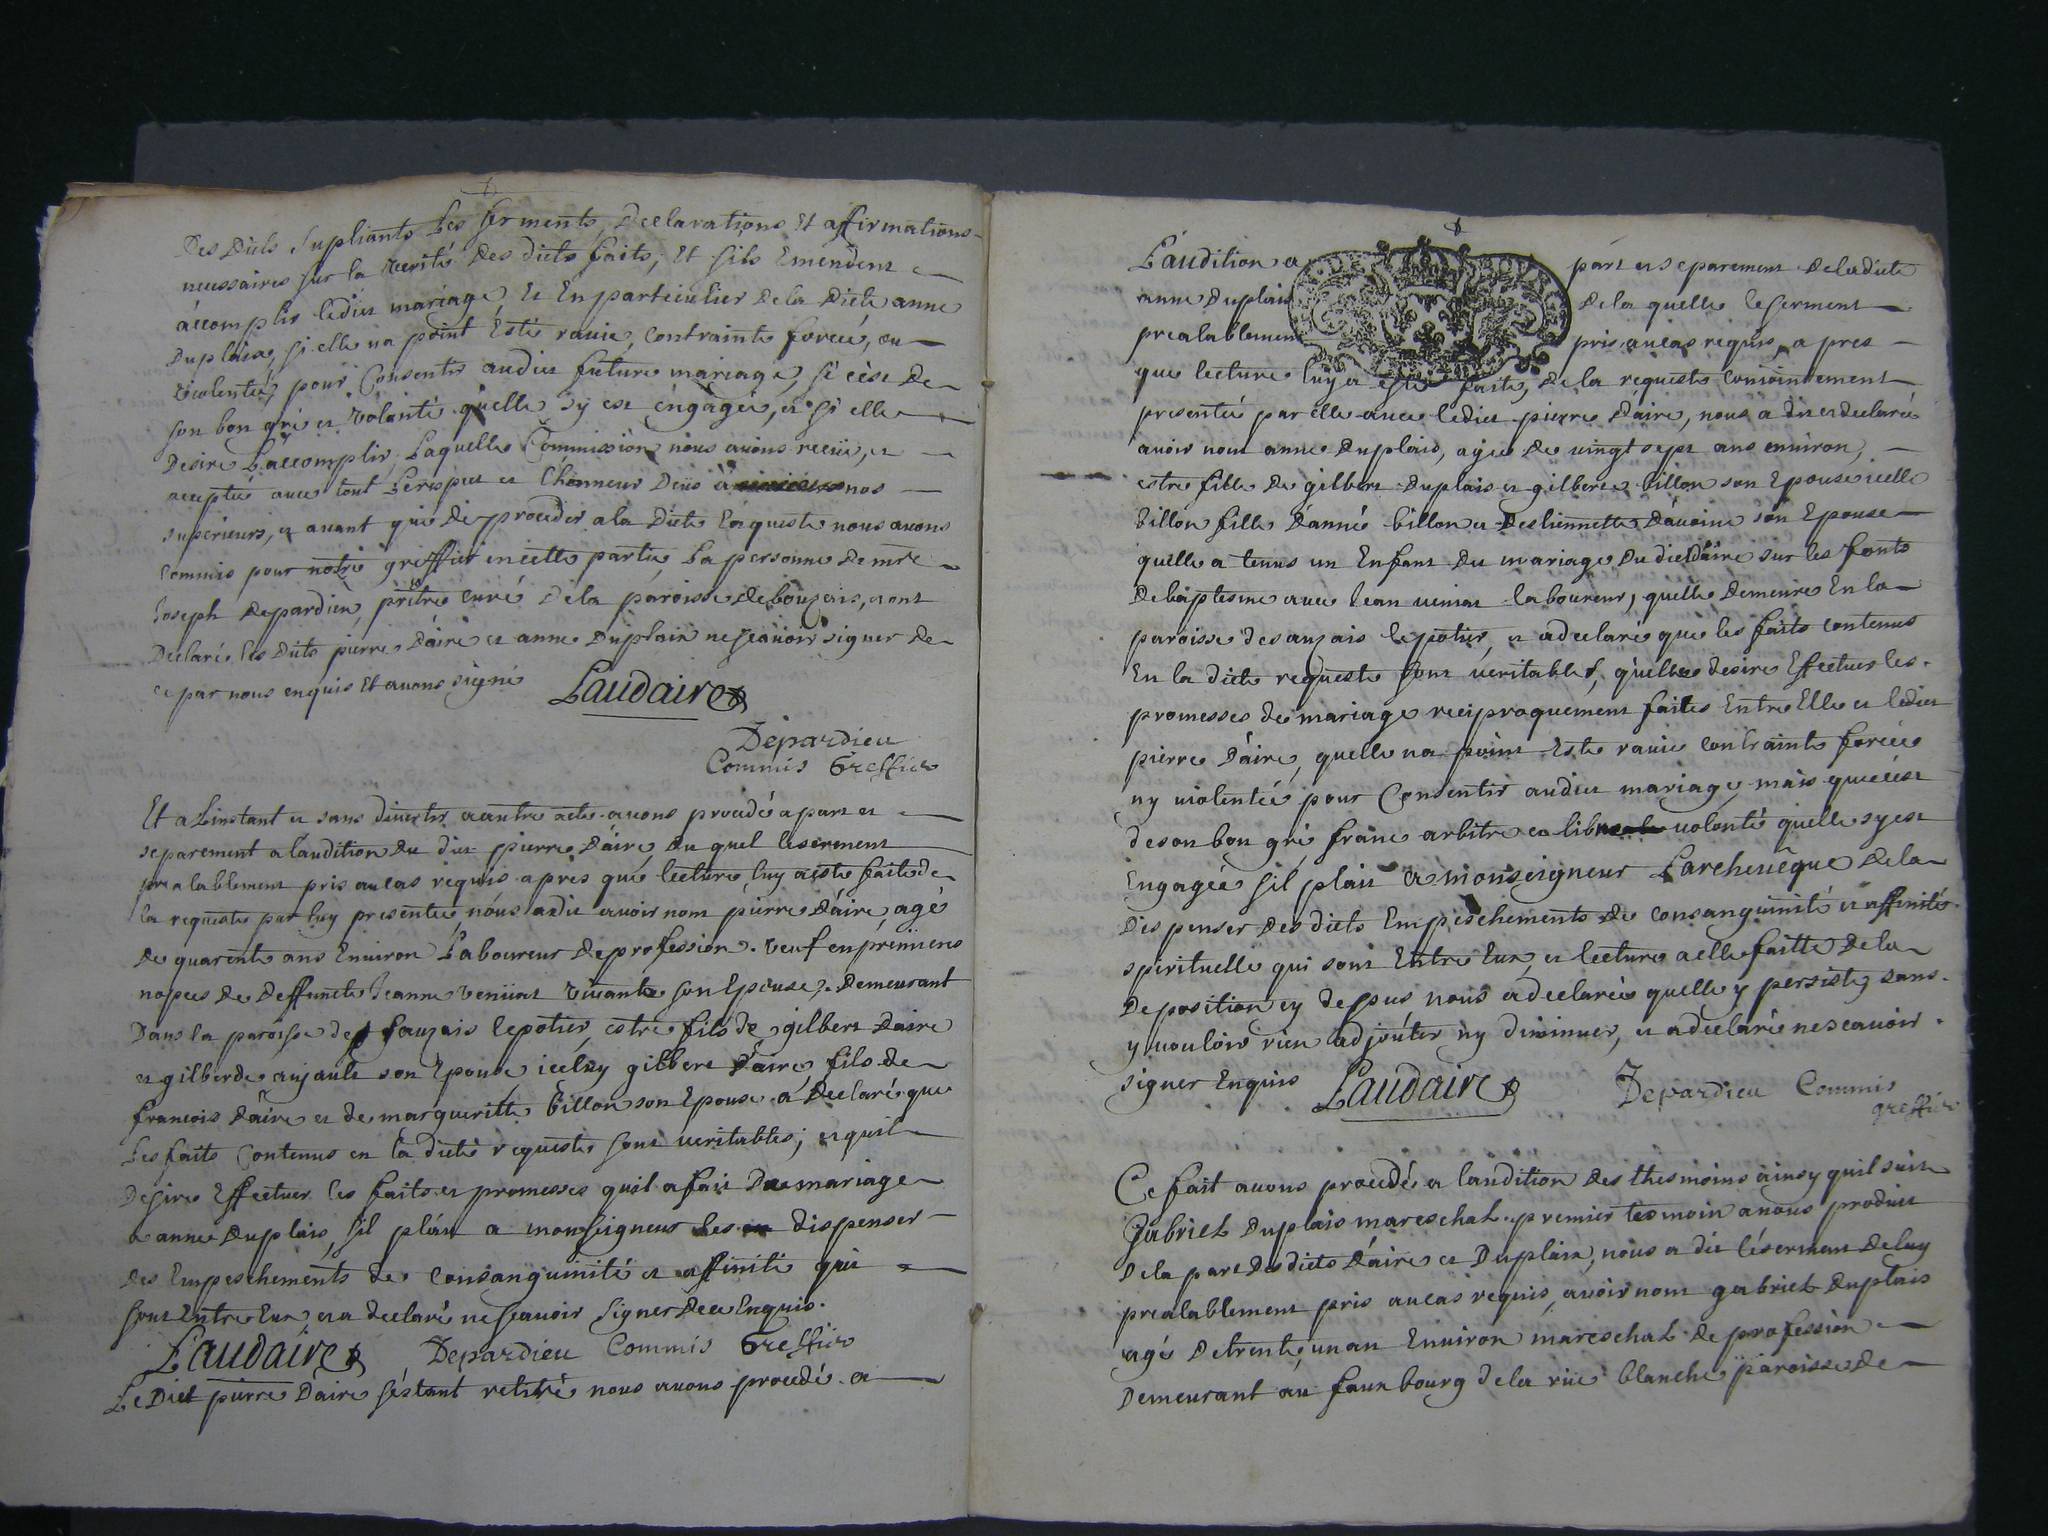 Des Dicts supliants Les serments, Declarations Et affirmations
necessaires sur la verité Des dicts faits, Et sils Entendent
accomplir ledict mariage, Et En particulier De la Dicte anne
Duplaix, si elle na point Esté ravie, contrainte forcée, ou
violentée, pour Consentir audict future mariage, si cest De
son bon gré et volonté quelle sy est éngagée, et si elle
Desire L'accomplir, Laquelle Commission nous avons receüe, et
acceptée avec tout Le respect et L'honneur Deüs à nos
superieurs, et avant que de proceder a la Dicte Enqueste nous avons
commis pour notre greffier en cette partie La personne De mre
Joseph Depardieu, prêtre curé De la paroisse de bouzais, et ont
Declaré les Dicts pierre Daire et anne Duplaix ne sçavoir signer de
ce par nous enquis Et avons signé Laudaire
Depardieu
Commis Greffier
Et a L'instant et sans divertir a autre acte avons procedé a part et
separement a laudition du dict pierre Daire, du quel le serment
prealablement pris au cas requis apres que lecture luy a esté faite de
la requeste par luy presentée nous a dit avoir nom pierre Daire, agé
de quarente ans Environ Laboureur de profession. veuf en premieres
nopces de Deffuncte Jeanne venuat vivante son Epouse, Demeurant
Dans la paroisse de sauzais lepotier, estre fils de gilbert Daire
et gilberde aujault son Epouse, icelluy gilbert Daire, fils de
francois Daire et de margueritte Billon son Epouse a Declaré que
Les faits Contenus en la dicte requeste sont veritables; et quil
Desire Effectuer les faits et promesses quil a fait De mariage
a anne Duplais, sil plait a monseigneur les dispenser
des Empeschements de consanguinité et affinité qui
sont Entre Eux, et a declaré ne sçavoir signer De ce Enquis.
Laudaire Depardieu Commis Greffier
Le Dict pierre Daire s'estant retiré nous avons procedé a
L'audition a part et separement De la dicte
anne Duplais De la quelle le serment
prealablement pris au cas requis, apres
que lecture luy a esté faite, de la requeste conjointement
presentée par elle avec ledict pierre Daire, nous a dit et declaré
avoir nom anne Duplais, agée De vingt sept ans environ,
estre fille De gilbert Duplais et gilberte billon son Epouse icelle
billon fille d'année billon et Destiennette D'avoine son Epouse
quelle a tenus un Enfant du mariage Du dict daire sur les fonts
De baptesme avec Jean venuat laboureur, quelle demeure En la
paroisse de sauzais lepotier, et a declaré que les faits contenus
En la dicte requeste sont veritables, quelle desire Effectuer les
promesses de mariage reciproquement faites Entre Elle et ledict
pierre Daire, quelle na point Esté ravie contrainte forcée
ny violentée pour Consentir audict mariage, mais que c'est
de son bon gré franc arbitre et libre volonté quelle sy est
Engagée sil plait a monseigneur Larchevêque De la
Dispenser Des dicts Empeschements de consanguinité et affinité
spirituelle qui sont Entre Eux, et lecture a elle faitte De la
Deposition cy dessus nous a declaré quelle y persiste, sans
y vouloir rien adjouter ny diminuer, et a declaré ne scavoir
signer Enquis Laudaire Depardieu Commis
greffier
Ce fait avons procedé a laudition des thesmoins ainsy quil suit
Gabriel Duplais mareschal premier tesmoin a nous produit
De la part Desdicts Daire et Duplaix, nous a dit le serment De luy
prealablement pris au cas requis, avoir nom gabriel Duplais
agé De trente un an Environ mareschal de profession
Demeurant au fauxbourg de la rüe blanche paroisse De